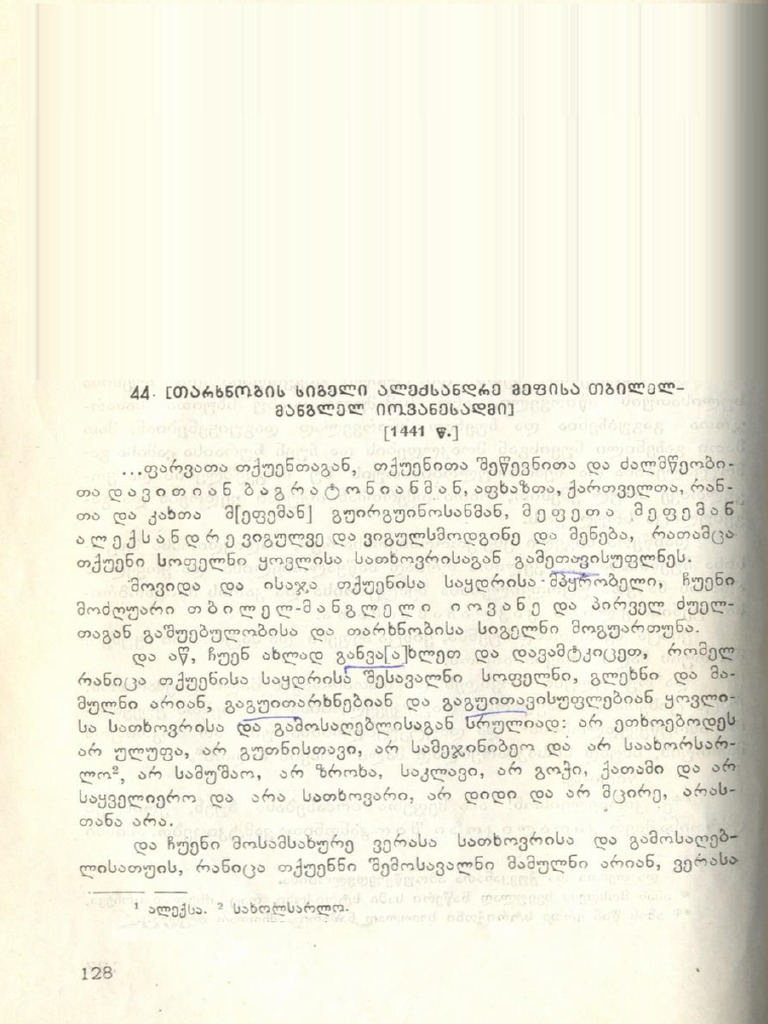 44. [თარხნობის სიგელი ალექსანდრე მეფისა თბილელ-
მანგლელ იოვანესადმი]
[1441 წ.]
...ფარვათა თქუენთაგან, თქუენითა შეწევნითა და ძალმწეობი-
თა დავითიან ბაგრატონიანმან, აფხაზთა, ქართველთა, რან-
თა და კახთა მ[ეფემან] გუირგუინოსანმან, მეფეთა მეფემან
ალექსანდრე ვიგულვე და ვიგულსმოდგინე და მენება, რათამცა
თქუენი სოფელნი ყოვლისა სათხოვრისაგან გამეთავისუფლნეს.
მოვიდა და ისაჯა თქუენისა საყდრისა მპყრობელი, ჩუენი
მოძღუარი თბილელ-მანგლელი იოვანე და პირველ ძუელ-
თაგან გაშუებულობისა და თარხნობისა სიგელნი მოგუართუნა.
და აწ, ჩუენ ახლად განვა[ა]ხლეთ და დავამტკიცეთ, რომელ
რანიცა თქუენისა საყდრისა შესავალნი სოფელნი, გლეხნი და მა-
მულნი არიან, გაგუითარხნებიან და გაგუითავისუფლებიან ყოვლი-
სა სათხოვრისა და გამოსაღებლისაგან სრულიად: არ ეთხოებოდეს
არ ულუფა, არ გუთნისთავი, არ სამეჯინიბეო და არ საახორსარ-
ლო², არ სამუშაო, არ ზროხა, საკლავი, არ გოჭი, ქათამი და არ
საყველიერო და არა სათხოვარი, არ დიდი და არ მცირე, არას-
თანა არა.
და ჩუენი მოსამსახურე ვერასა სათხოვრისა და გამოსაღებ-
ლისათჳის, რანიცა თქუენნი შემოსავალნი მამულნი არიან, ვერასა
¹ ალექსა. ² სახოლსარლო.
128